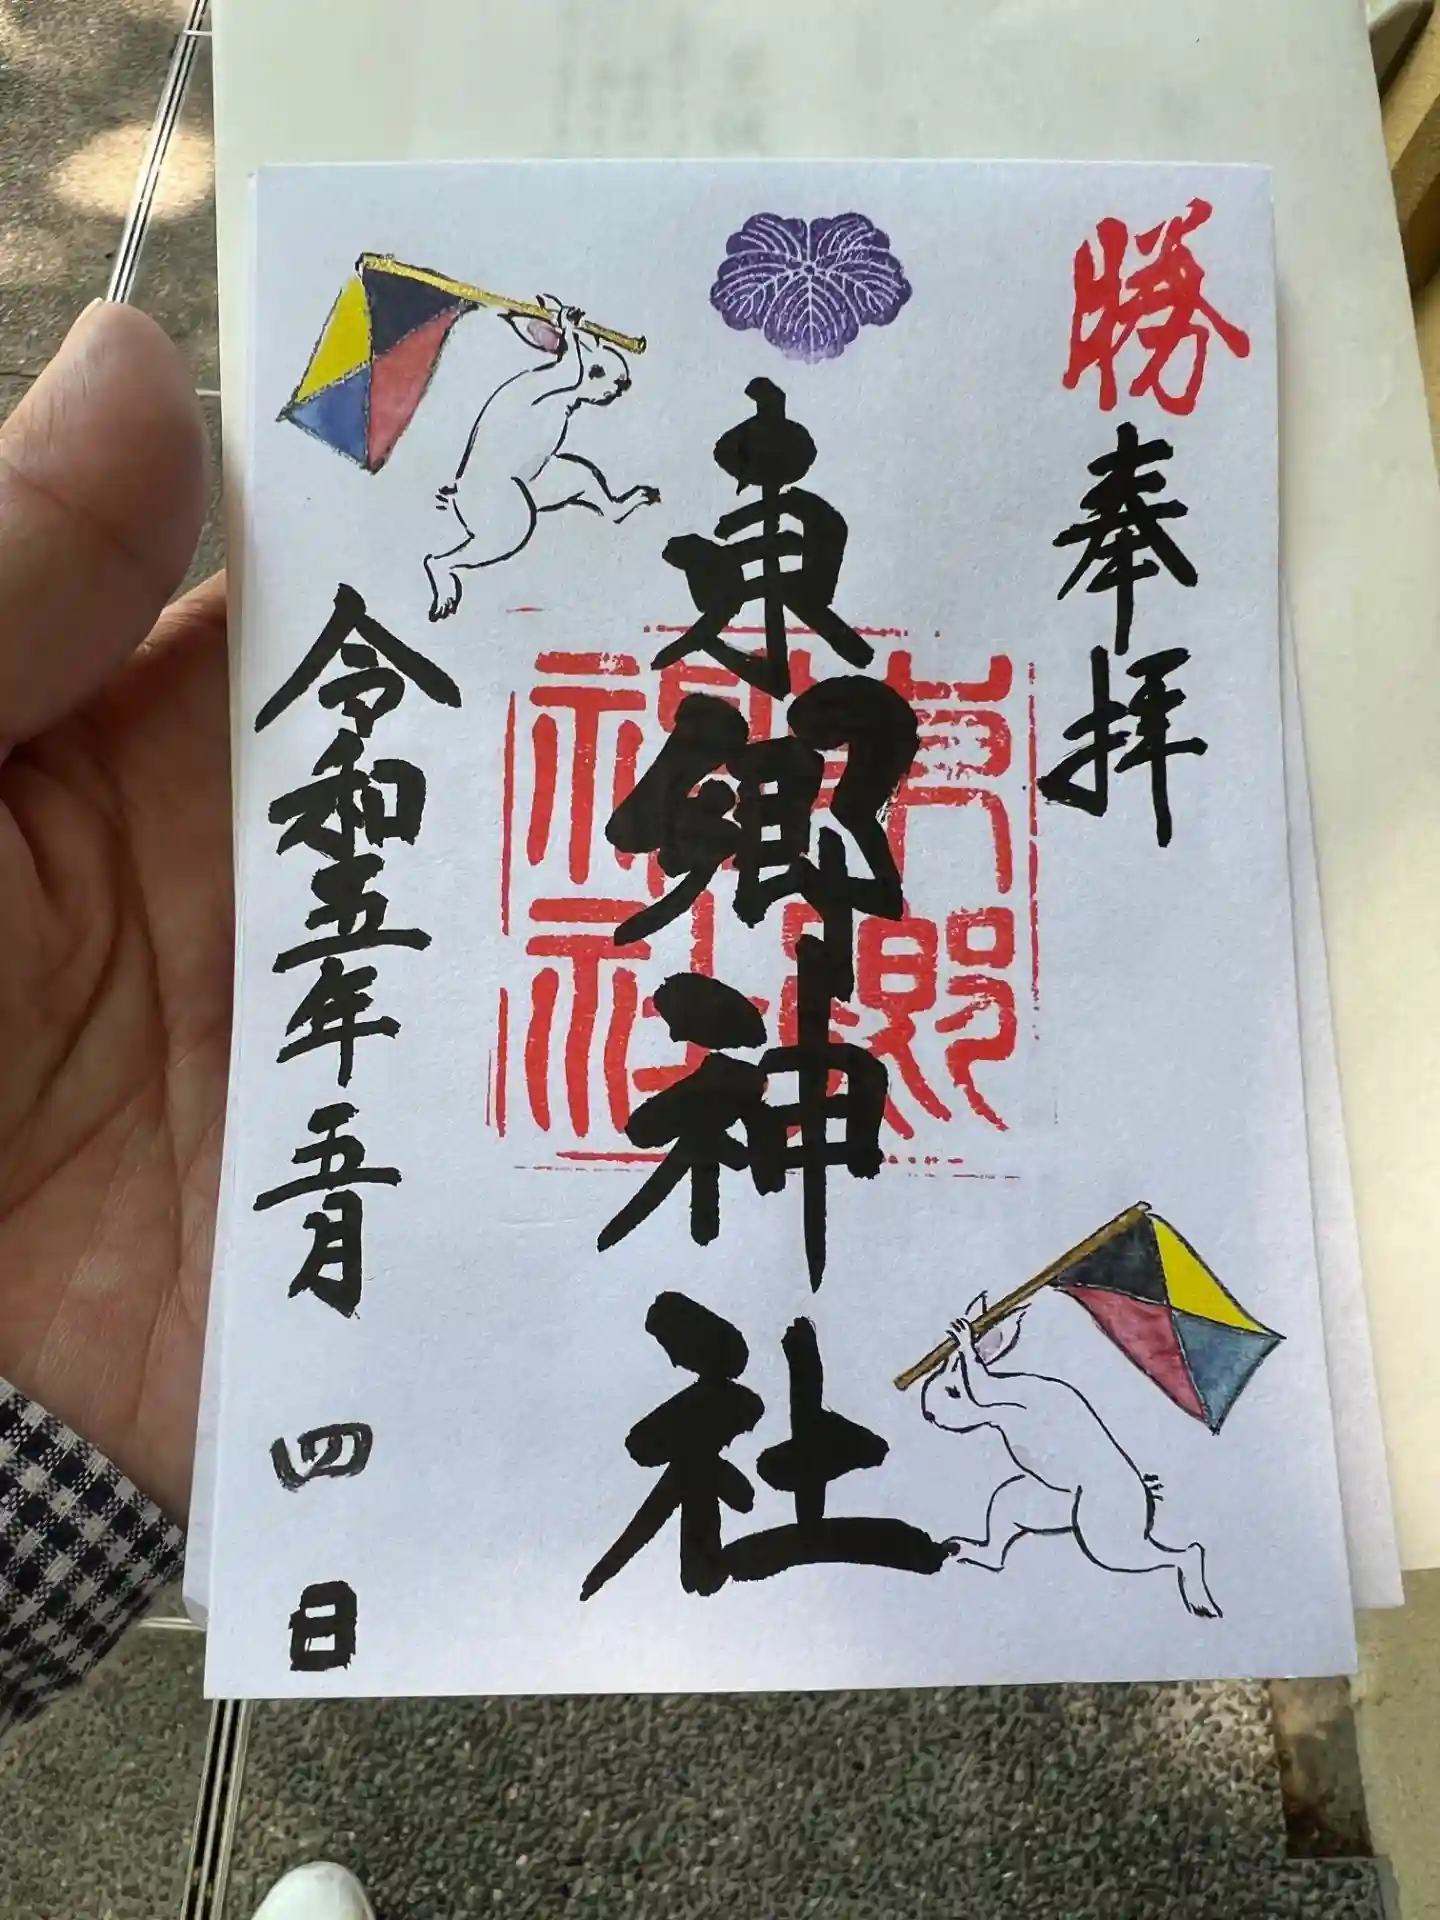 勝
奉拝
東郷神社
東郷神社
令和五年五月四日